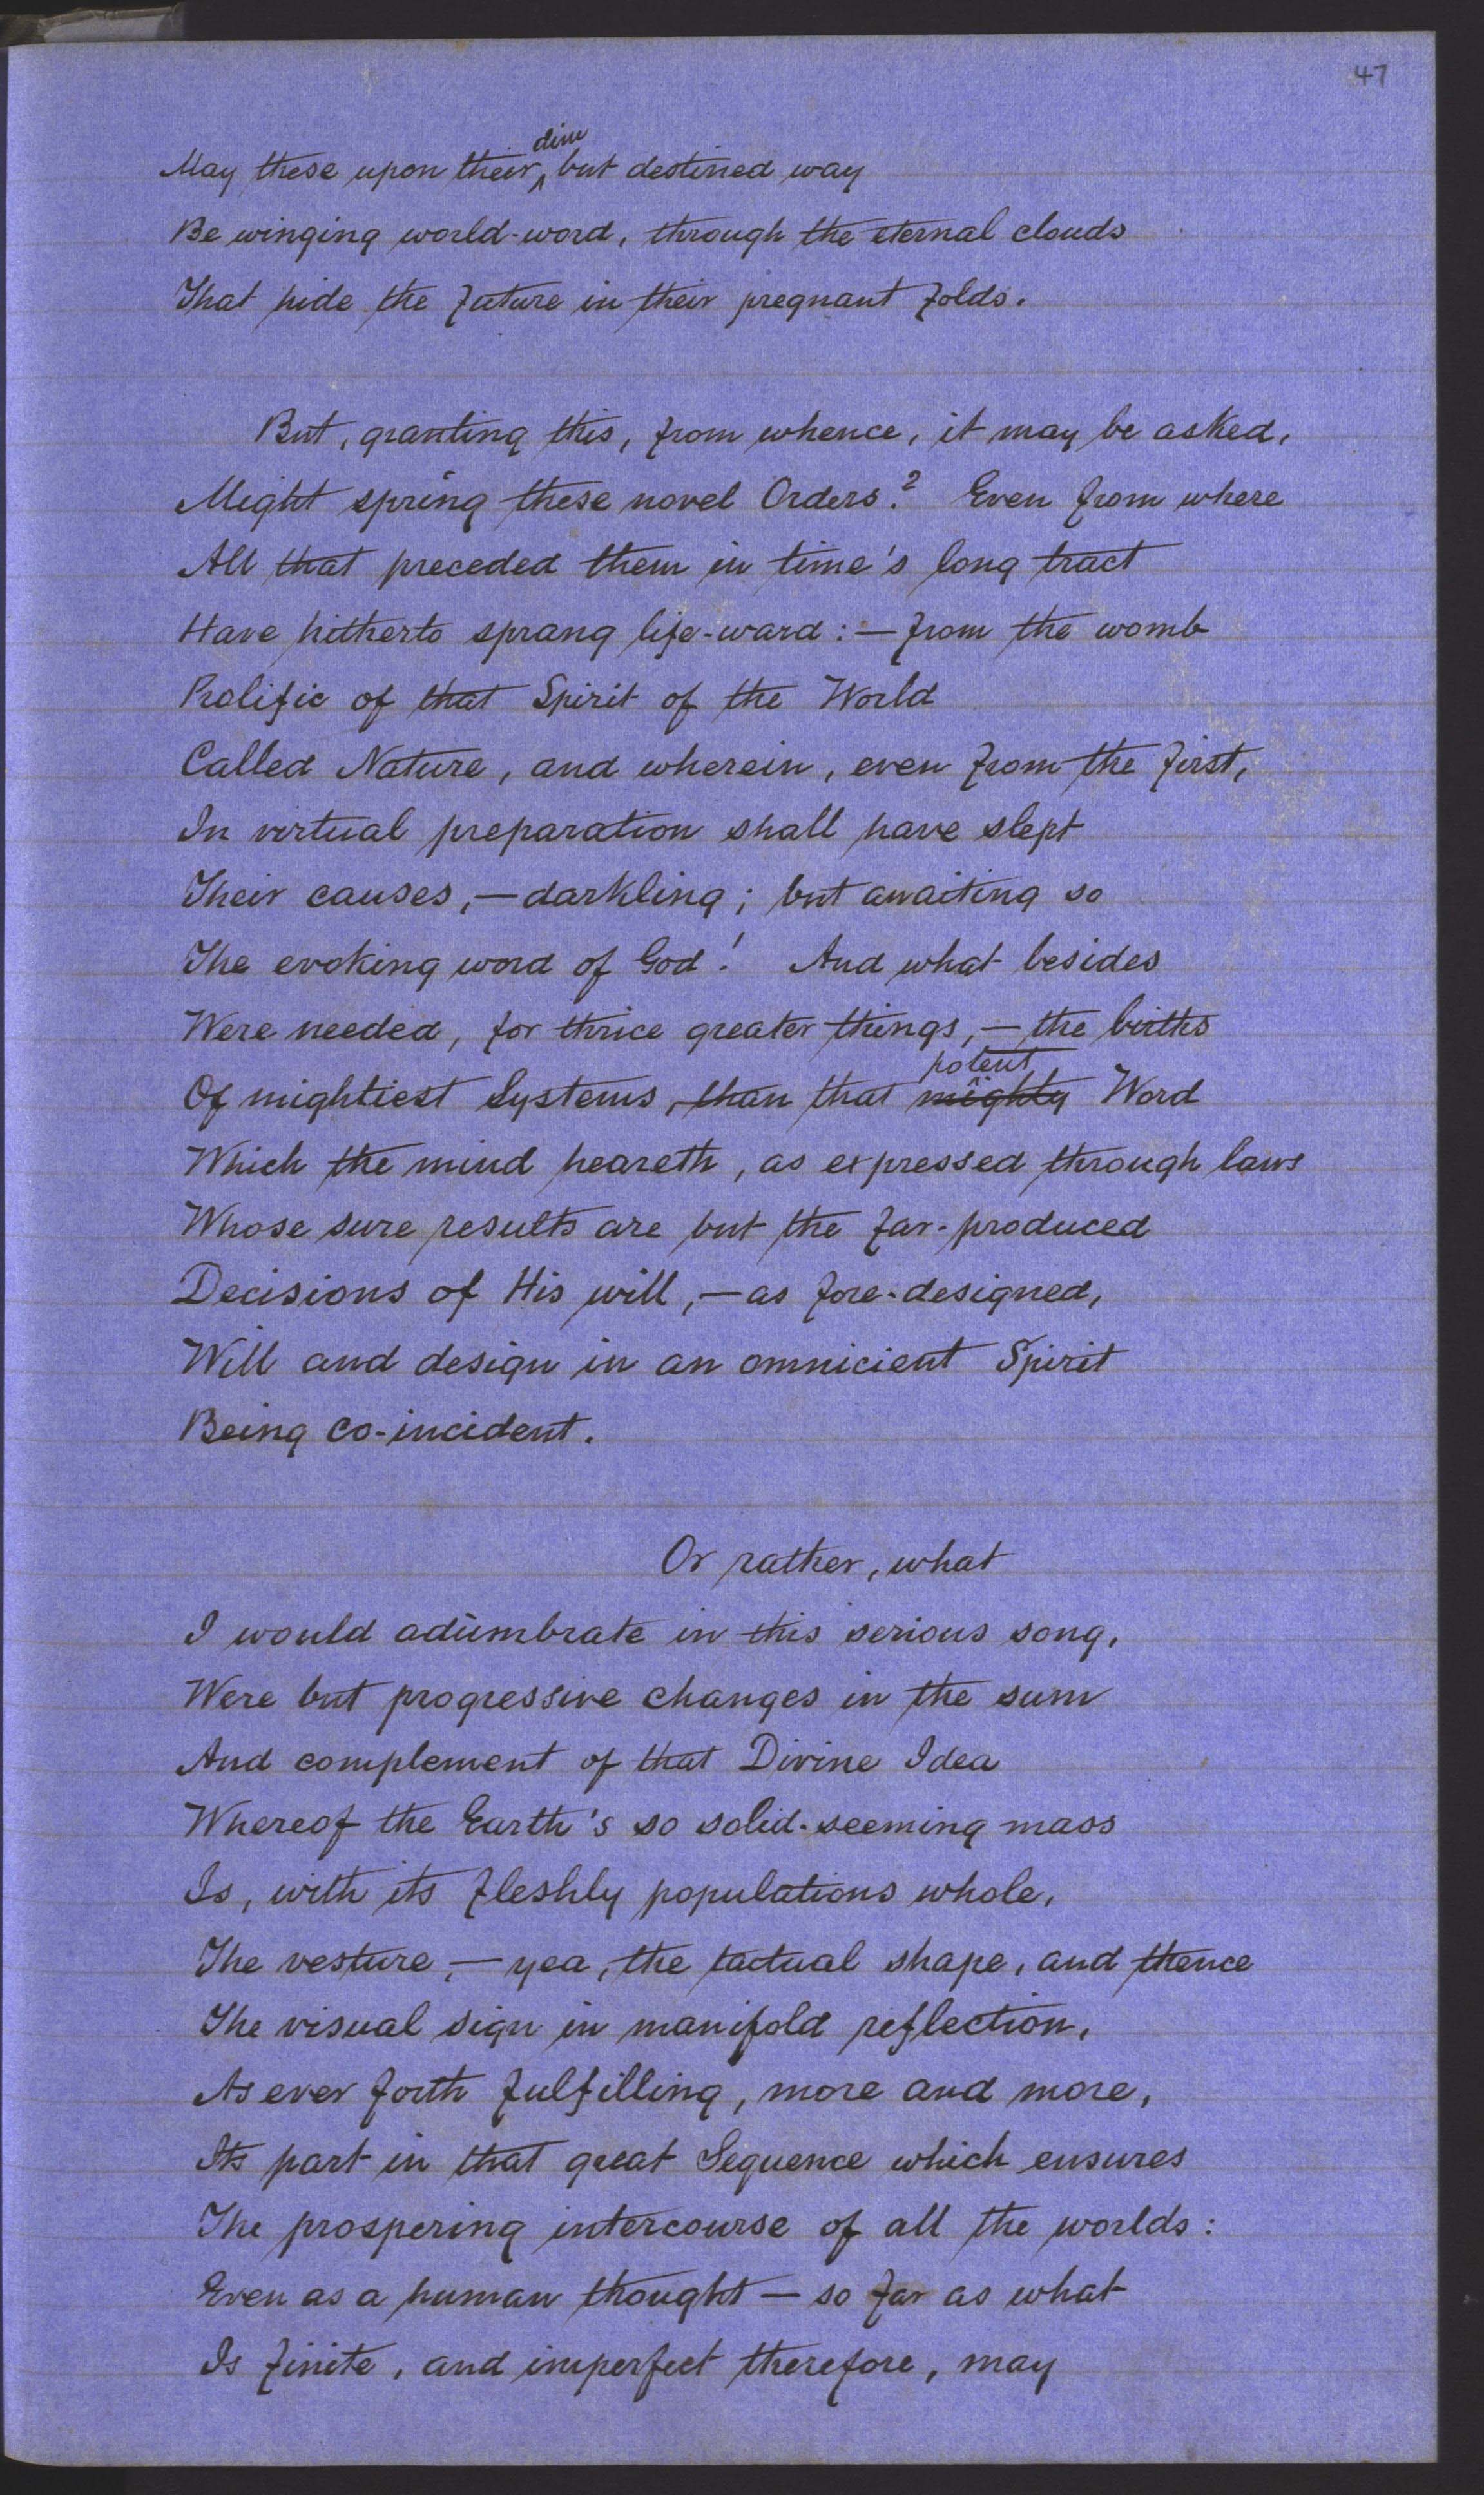 47
May these upon their dim but destined way
Be winging world-word, through the eternal clouds
That hide the future in their pregnant folds.
But, granting this, from whence, it may be asked,
Might spring these novel Orders? Even from where
All that preceded them in time's long tract
Have hitherto sprang life-ward:—from the womb
Prolific of that Spirit of the World
Called Nature, and wherein, even from the first,
In virtual preparation shall have slept
Their causes,—darkling; but awaiting so
The evoking word of God! And what besides
Were needed, for thrice greater things,—the births
Of mightiest Systems, than that mighty potent Word
Which the mind heareth, as expressed through laws
Whose sure results are but the far-produced
Decisions of His will,—as fore-designed,
Will and design in an omnicient Spirit
Being co-incident.
Or rather, what
I would adumbrate in this serious song,
Were but progressive changes in the sum
And complement of that Divine Idea
Whereof the Earth's so solid-seeming mass
Is, with its fleshly populations whole,
The vesture,—yea, the tactual shape, and thence
The visual sign in manifold reflection,
As ever forth fulfilling, more and more,
Its part in that great Sequence which ensures
The prospering intercourse of all the worlds:
Even as a human thought—so far as what
Is finite, and imperfect therefore, may